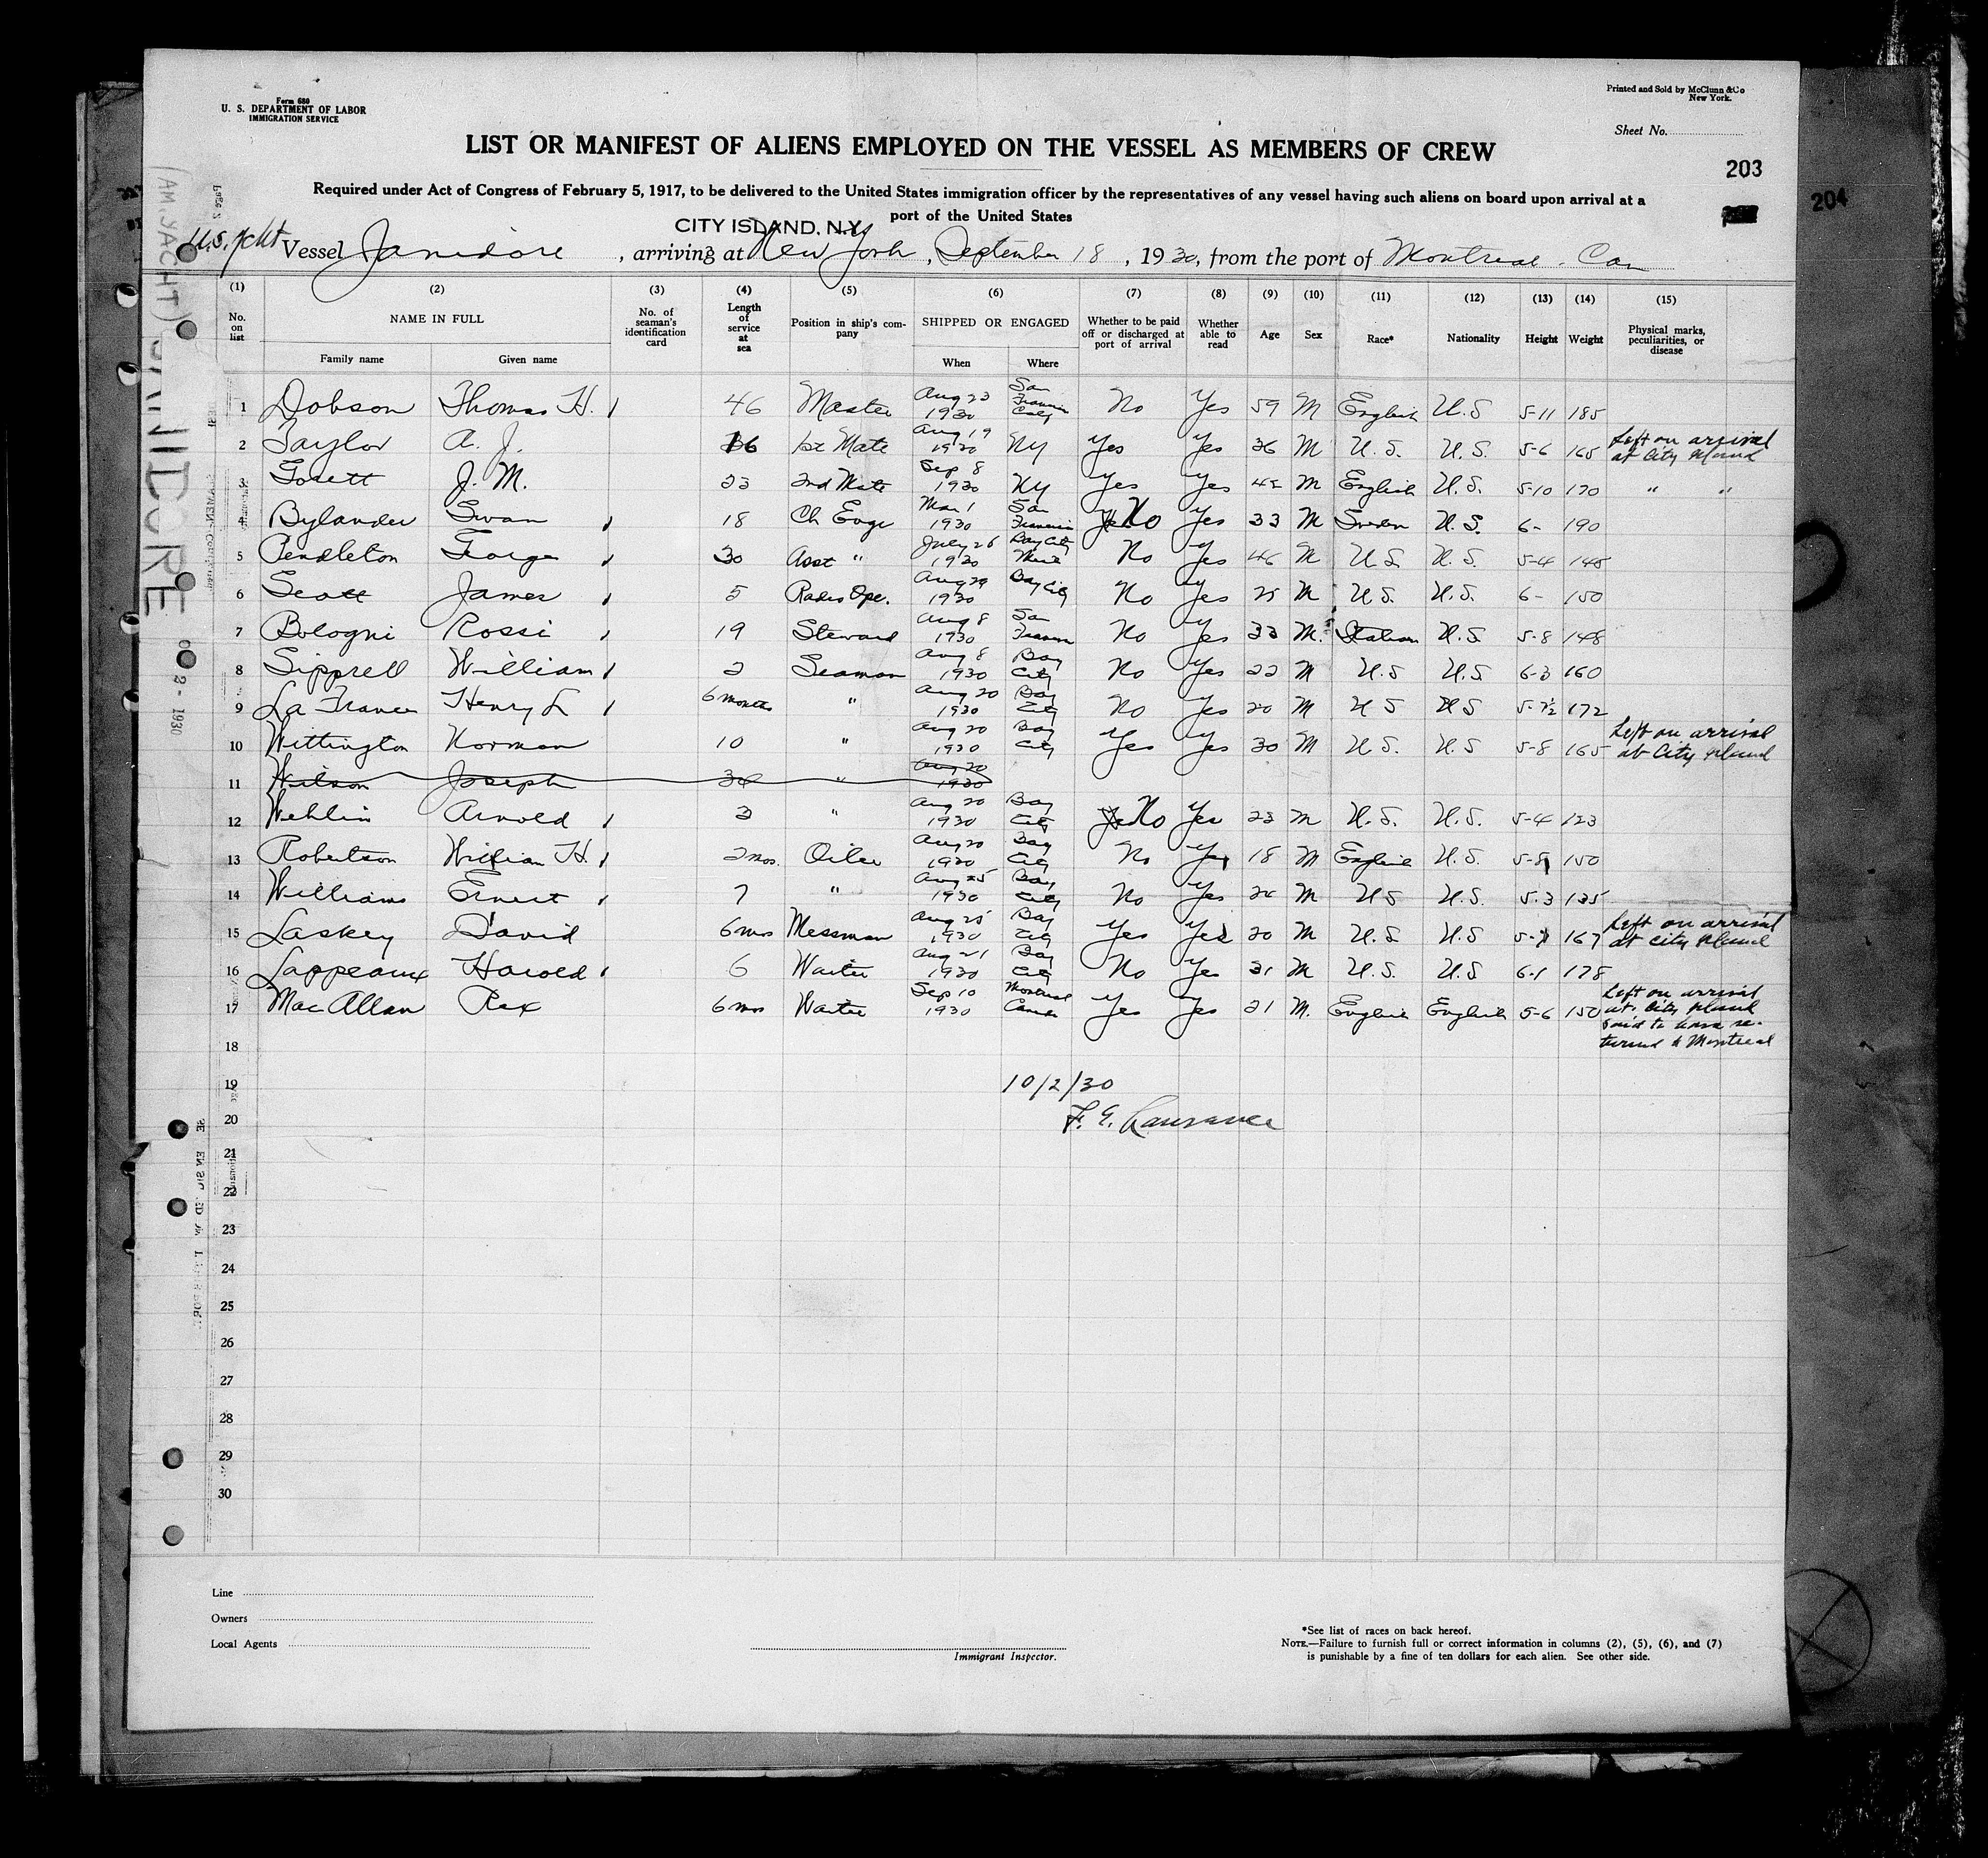 Form 680
U. S. DEPARTMENT OF LABOR
IMMIGRATION SERVICE
Printed and Sold by McClunn & Co
New York.
Sheet No.
LIST OR MANIFEST OF ALIENS EMPLOYED ON THE VESSEL AS MEMBERS OF CREW
203
204
Required under Act of Congress of February 5, 1917, to be delivered to the United States immigration officer by the representatives of any vessel having such aliens on board upon arrival at a
port of the United States
CITY ISLAND, N.Y.
U.S. Ycht Vessel Janidore, arriving at New York, September 18, 1930, from the port of Montreal - Can
(1) (2) (3) (4) (5) (6) (7) (8) (9) (10) (11) (12) (13) (14) (15)
No. on list NAME IN FULL No. of seaman's identification card Length of service at sea Position in ship's company SHIPPED OR ENGAGED Whether to be paid off or discharged at port of arrival Whether able to read Age Sex Race* Nationality Height Weight Physical marks, peculiarities, or disease
Family name Given name When Where
1 Dobson Thomas H. 46 Master Aug 23 1930 San Francis Calif No Yes 59 M English U.S 5-11 185
2 Taylor A. J. 16 1st Mate Aug 19 1930 NY Yes Yes 36 M U.S. U.S. 5-6 165 Left on arrival at City Island
3 J. M. 23 2nd Mate Sep 8 1930 NY Yes Yes 42 M English U.S. 5-10 170 " "
4 Bylander Swan 18 Ch Engr Mar 1 1930 San Francis No Yes 33 M Sweden U.S. 6- 190
5 Pendleton George 30 Asst " July 26 1930 Bay City Mich No Yes 46 M U S U.S. 5-4 145
6 Scott James 5 Radio Ope. Aug 29 1930 Bay City No Yes 25 M U.S. U.S. 6- 150
7 Bologni Rossi 19 Steward Aug 8 1930 San Francis No Yes 33 M. Italian U.S 5-8 148
8 Sipprell William 2 Seaman Aug 8 1930 Bay City No Yes 22 M U.S U.S 6-3 160
9 La France Henry L 6 months " Aug 20 1930 Bay City No Yes 20 M U S U S 5-7½ 172
10 Wittington Norman 10 " Aug 20 1930 Bay City Yes Yes 30 M U.S. U.S 5-8 165 Left on arrival at City Island
11 Wilson Joseph 34 " Aug 20 1930
12 Wehlin Arnold 3 " Aug 20 1930 Bay City No Yes 23 M U.S. U.S. 5-4 123
13 Robertson William H. 2 mos. Oiler Aug 20 1930 Bay City No Yes 18 M English U.S. 5-8 150
14 Williams Ernest 7 " Aug 25 1930 Bay City No Yes 24 M U S U.S. 5-3 135
15 Laskey David 6 mos Messman Aug 25 1930 Bay City Yes Yes 20 M U.S U.S 5-7 167 Left on arrival at City Island
16 Lappeaux Harold 6 Waiter Aug 21 1930 Bay City No Yes 31 M U.S. U.S 6-1 178
17 MacAllan Rex 6 mos Waiter Sep 10 1930 Montreal Canada Yes Yes 21 M. English English 5-6 150 Left on arrival at City Island said to have returned to Montreal
18
19
20
21
22
23
24
25
26
27
28
29
30
10/2/30
F. E. Lawrance
Line
Owners
Local Agents
Immigrant Inspector.
*See list of races on back hereof.
NOTE.—Failure to furnish full or correct information in columns (2), (5), (6), and (7)
is punishable by a fine of ten dollars for each alien. See other side.
(AM. YACHT)